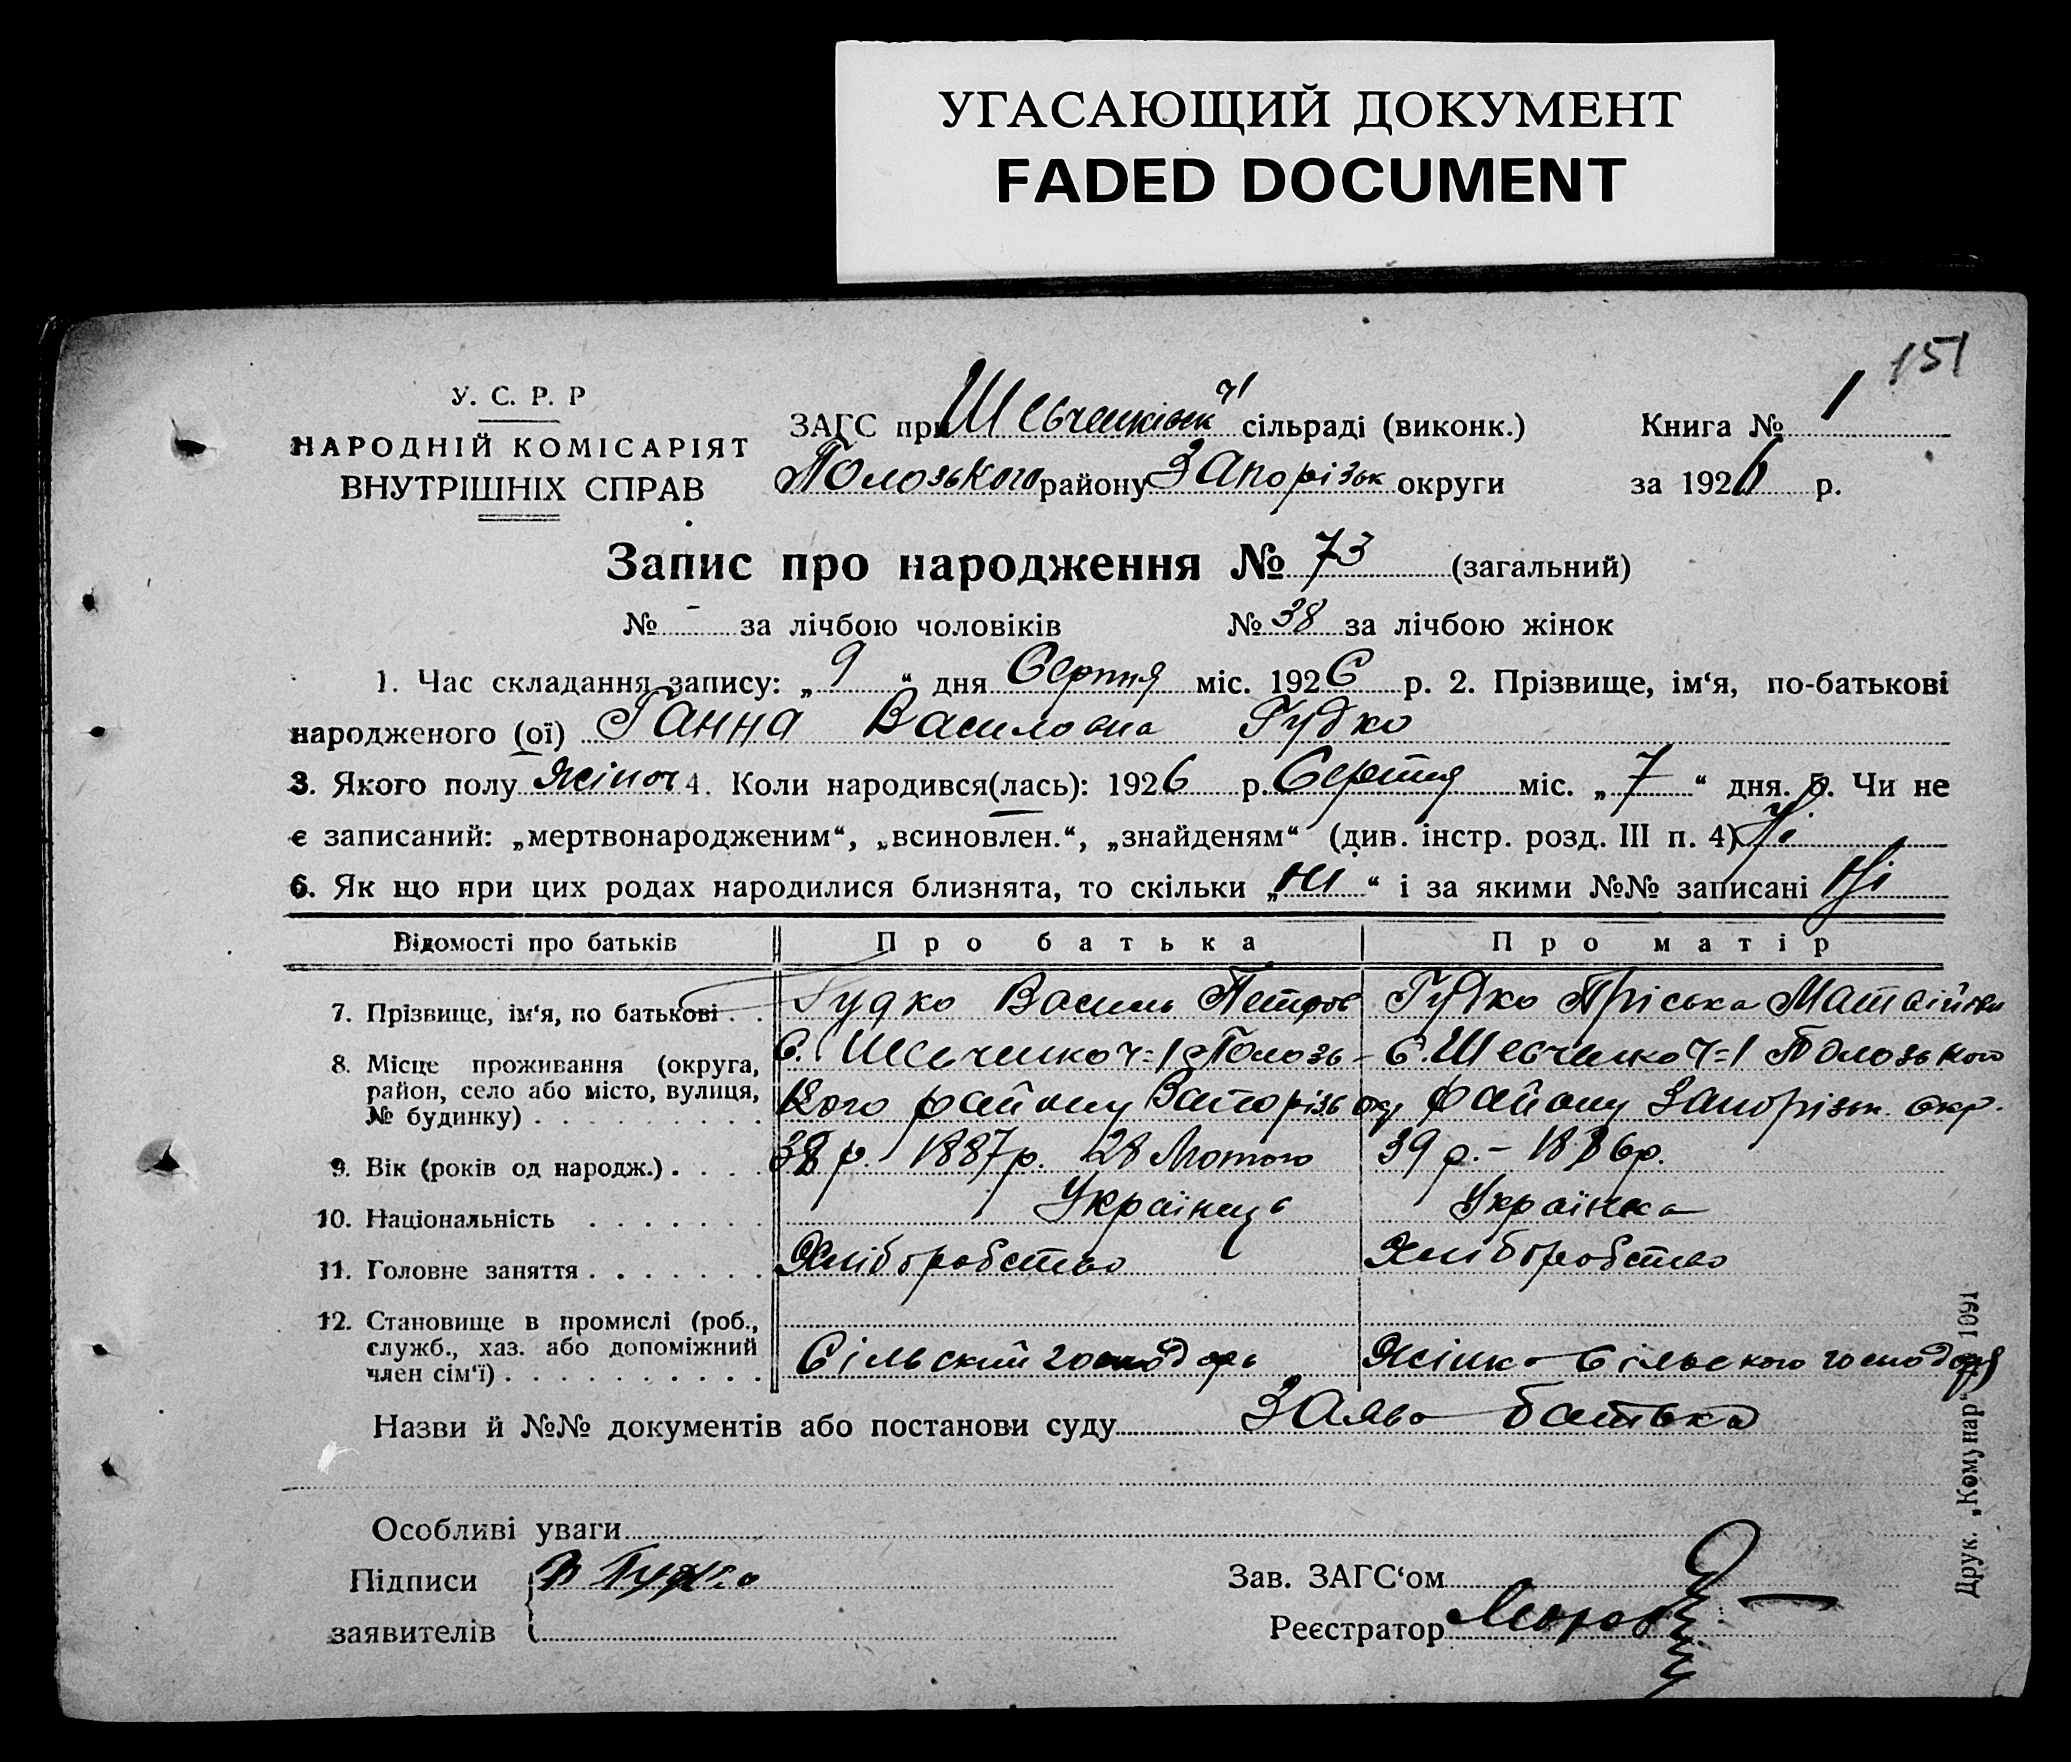 УГАСАЮЩИЙ ДОКУМЕНТ
FADED DOCUMENT
151
У. С. Р. Р
НАРОДНІЙ КОМІСАРІЯТ
ВНУТРІШНІХ СПРАВ
ЗАГС при Шевченківськ ч1 сільраді (виконк.)
Пологського району Запорізьк округи
Книга № 1
за 1926 р.
Запис про народження № 73 (загальний)
№ - за лічбою чоловіків № 38 за лічбою жінок
1. Час складання запису: „ 9 “ дня Серпня міс. 1926 р. 2. Прізвище, ім‘я, по-батькові
народженого (ої) Ганна Василовна Гудко
3. Якого полу жіноч 4. Коли народився(лась): 1926 р. Серпня міс. „ 7 “ дня. 5. Чи не
є записаний: „мертвонародженим“, „всиновлен.“, „знайденям“ (див. інстр. розд. III п. 4) Ні
6. Як що при цих родах народилися близнята, то скільки „ ні “ і за якими №№ записані Ні
Відомості про батьків Про батька Про матір
7. Прізвище, ім‘я, по батькові . . Гудко Василь Петров Гудко Пріська Матвійовн
8. Місце проживання (округа, район, село або місто, вулиця, № будинку) . . . . . . . . .
С. Шевченко ч=1 Полозь-
кого району Запорізь окр
С. Шевченко ч=1 Полозького
району Запорізьк. окр.
9. Вік (років од народж.) . . . . 38 р. 1887р. 28 Лютого 39 р.- 1886р.
10. Національність . . . . . . . Українець Українка
11. Головне заняття . . . . . . . Хліборобство Хліборобство
12. Становище в промислі (роб., служб., хаз. або допоміжний член сім‘ї) . . . . . . . . . .
Сільский господарь Жінка Сільского господаря
Назви й №№ документів або постанови суду Заява батька
Особливі уваги
Підписи заявителів В Гудко
Зав. ЗАГС‘ом
Реєстратор
Друк. „Комунар“ 1091